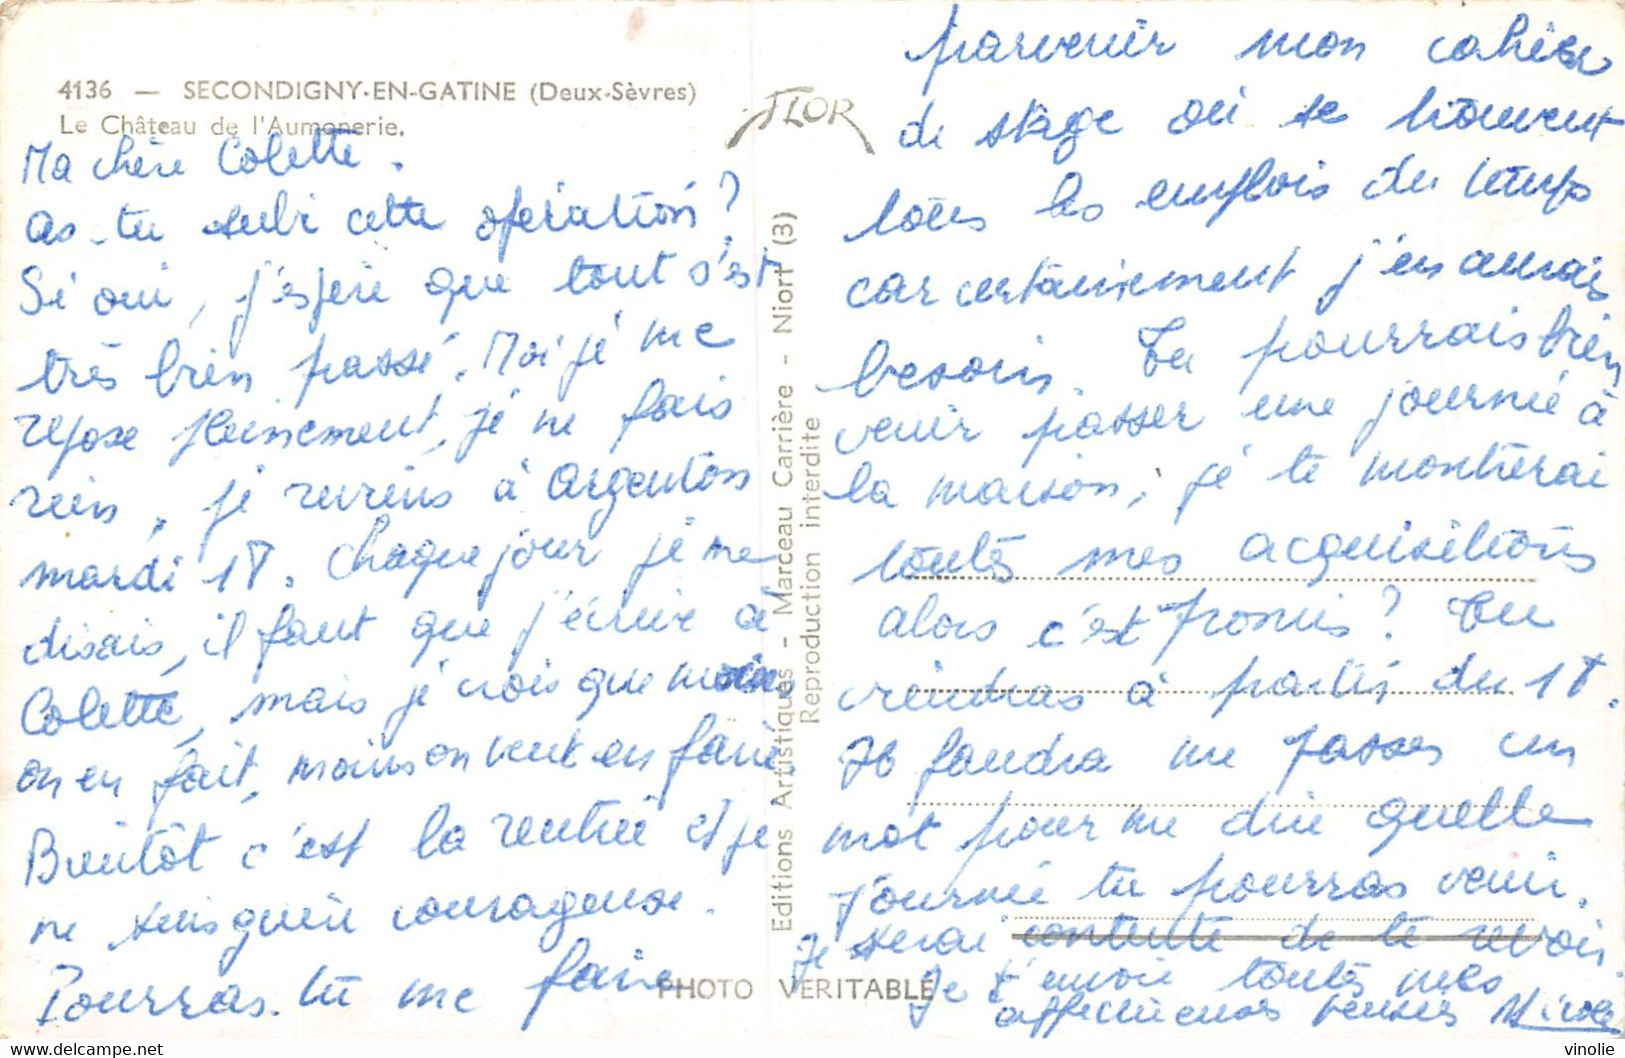 4136 — SECONDIGNY-EN-GATINE (Deux-Sèvres)
Le Château de l'Aumonerie.
Ma chère Colette.
As-tu subi cette opération ?
Si oui, j'espère que tout s'est
très bien passé. Moi je me
repose pleinement, je ne fais
rien, je reviens à Argenton
mardi 18. Chaque jour je me
disais, il faut que j'écrive à
Colette, mais je crois que moins
on en fait, moins on veut en faire.
Bientôt c'est la rentrée et je
ne suis guère courageuse.
Pourras-tu me faire
FLOR
Editions Artistiques - Marceau Carrière - Niort (3)
Reproduction interdite
PHOTO VERITABLE
parvenir mon cahier
de stage où se trouvent
tous les emplois du temps
car certainement j'en aurais
besoin. Tu pourrais bien
venir passer une journée à
la maison, je te montrerai
toutes mes acquisitions
alors c'est promis ? Tu
viendras à partir du 18.
Il faudra me passer un
mot pour me dire quelle
journée tu pourras venir.
Je serai contente de te revoir.
Je t'envoie toutes mes
affectueuses pensées Nicole
vinolie